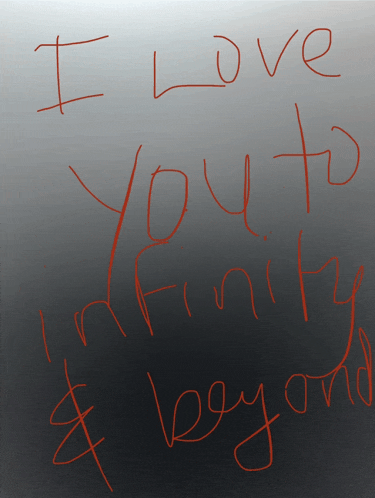 I Love
you to
infinity
& beyond